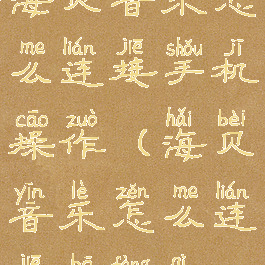 海贝音乐怎
me lián jiē shǒu jī
么连接手机
cāo zuò hǎi bèi
操作（海贝
yīn lè zěn me lián
音乐怎么连
jiē bō fàng qì